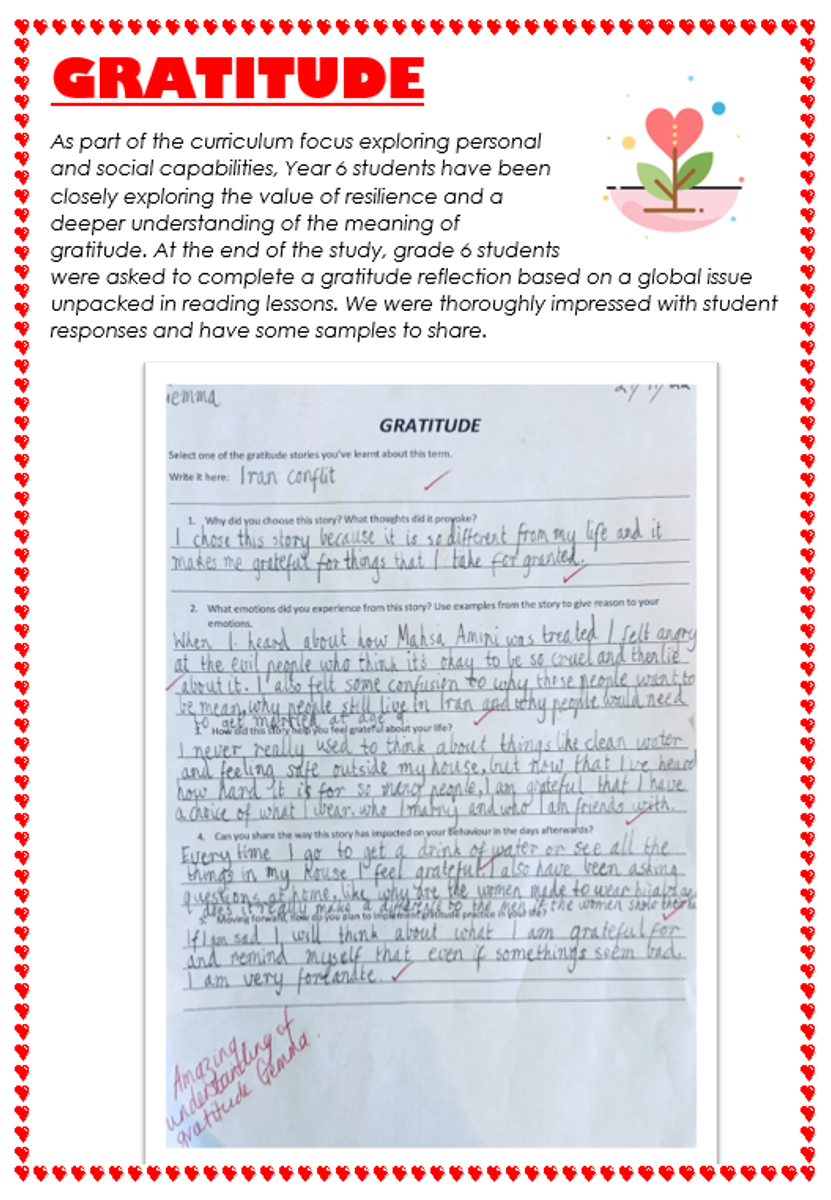 GRATITUDE
As part of the curriculum focus exploring personal
and social capabilities, Year 6 students have been
closely exploring the value of resilience and a
deeper understanding of the meaning of
gratitude. At the end of the study, grade 6 students
were asked to complete a gratitude reflection based on a global issue
unpacked in reading lessons. We were thoroughly impressed with student
responses and have some samples to share.
GRATITUDE
Select one of the gratitude stories you've learnt about this term.
Write it here: Iran conflit
1. Why did you choose this story? What thoughts did it provoke?
I chose this story because it is so different from my life and it
makes me grateful for things that I take for granted.
2. What emotions did you experience from this story? Use examples from the story to give reason to your
emotions.
When I heard about how Mahsa Amini was treated I felt angry
at the evil people who think it's okay to be so cruel and then lie
about it. I also felt some confusion to why those people want to
be mean, why people still live in Iran and why people would need
to get married at age 9.
3. How did this story help you feel grateful about your life?
I never really used to think about things like clean water
and feeling safe outside my house, but now that I've heard
how hard it is for so many people, I am grateful that I have
a choice of what I wear, who I marry and who I am friends with.
4. Can you share the way this story has impacted on your behaviour in the days afterwards?
Every time I go to get a drink of water or see all the
things in my house I feel grateful. I also have been asking
questions at home, like why are the women made to wear hijabs
does it really make a difference to the men if the women show their
5. Moving forward, how do you plan to implement gratitude practice in your life?
If I am sad I will think about what I am grateful for
and remind myself that even if somethings seem bad,
I am very fortandte.
Amazing
understanding of
gratitude Gemma.